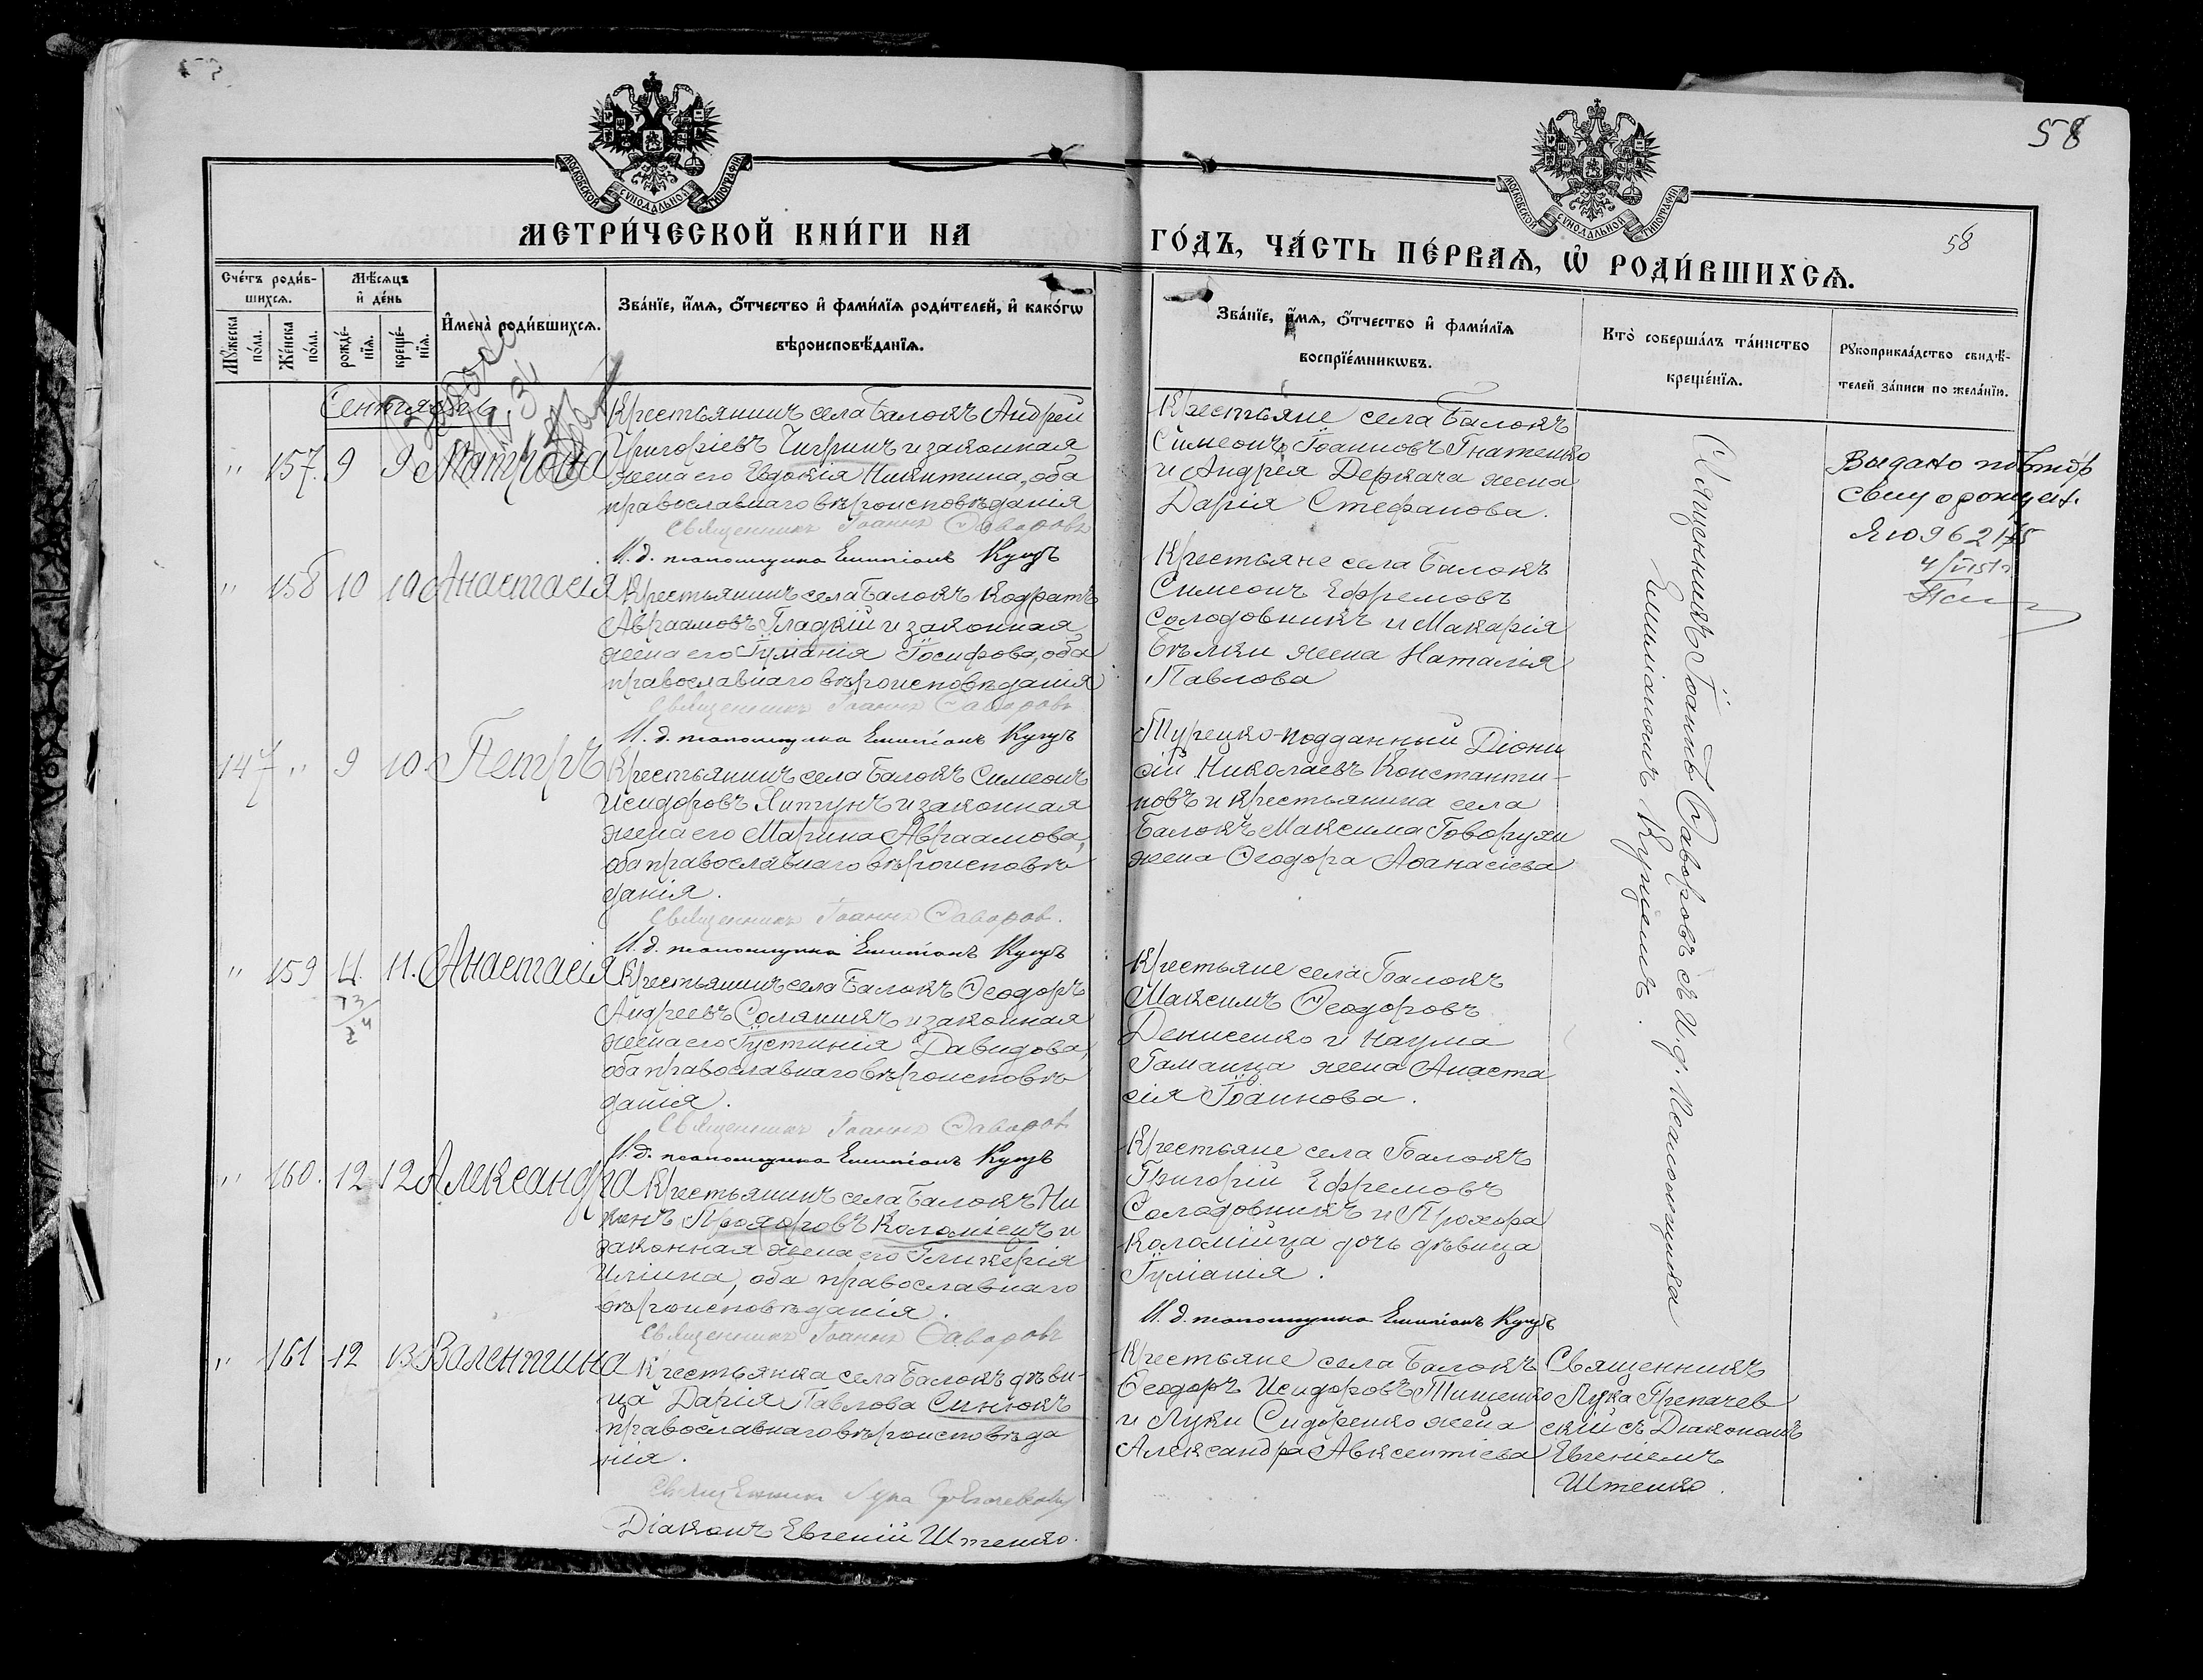 58
МОСКОВСКОЙ СѴНОДАЛЬНОЙ ТИПОГРАФІИ
МОСКОВСКОЙ СѴНОДАЛЬНОЙ ТИПОГРАФІИ
МЕТРИ́ЧЕСКОЙ КНИ́ГИ НА
ГО́ДЪ, ЧА́СТЬ ПЕ́РВАѦ, Ѽ РОДИ́ВШИХСѦ.
58
Сче́тъ роди́в-
шихсѧ.
Мꙋ́жеска
по́ла.
Же́нска
по́ла.
Мѣ́сѧцъ
и҆ де́нь
рожде́-
нїѧ.
креще́-
нїѧ.
И҆мена̀ роди́вшихсѧ.
Зва́нїе, и҆́мѧ, ѻ҆́тчество и҆ фами́лїѧ роди́телей, и҆ како́гѡ
вѣроисповѣ́данїѧ.
Зва́нїе, и҆́мѧ, ѻ҆́тчество и҆ фами́лїѧ
воспрїе́мникѡвъ.
Кто̀ соверша́лъ та́инство
креще́нїѧ.
Рꙋкоприкла́дство свидѣ́-
телей за́писи по жела́нїю.
Сентябрь
" 157. 9 9 Матрона
Крестьянинъ села Балокъ Андрей
Григоріевъ Чигринъ и законная
жена его Евдокія Никитина, оба
православнаго вѣроисповѣданія
Священникъ Іоаннъ Ѳаворовъ
И. д. псаломщика Емиліанъ Куцъ
Крестьяне села Балокъ
Симеонъ Іоанновъ Гнатенко
и Андрея Деркача жена
Дарія Стефанова.
Священникъ Іоаннъ Ѳаворовъ съ И. д. Псаломщика
Емиліаномъ Куцемъ.
Выдано повтор
свид о рожден.
ЯЮ 962175
" 158 10 10 Анастасія
Крестьянинъ села Балокъ Кодратъ
Авраамовъ Гладкій и законная
жена его Іуліанія Іосифова, оба
православнаго вѣроисповѣданія
Священникъ Іоаннъ Ѳаворовъ
И. д. псаломщика Емиліанъ Куцъ
Крестьяне села Балокъ
Симеонъ Ефремовъ
Солодовникъ и Макарія
Бѣлки жена Наталія
Павлова
147 " 9 10. Петръ
Крестьянинъ села Балокъ Симеонъ
Исидоровъ Ялтунъ и законная
жена его Марина Авраамова,
оба православнаго вѣроисповѣ
данія.
Священникъ Іоаннъ Ѳаворов.
И. д. псаломщика Емиліанъ Куцъ
Турецко-подданный Діони
сій Николаевъ Константи-
новъ и крестьянина села
Балокъ Максима Говорухи
жена Ѳеодора Аѳанасіева
" 159 11. 11. Анастасія
Крестьянинъ села Балокъ Ѳеодоръ
Андреевъ Соляникъ и законная
жена его Іустинія Давидова,
оба православнаго вѣроисповѣ
данія.
Священникъ Іоаннъ Ѳаворов
И. д. псаломщика Емиліанъ Куцъ
Крестьяне села Балокъ
Максимъ Ѳеодоровъ
Денисенко и Наума
Гаманца жена Анаста
сія Іоаннова.
" 160. 12 12 Александра
Крестьянинъ села Балокъ Ни
конъ Прохоровъ Коломіецъ и
законная жена его Гликерія
Иліина, оба православнаго
вѣроисповѣданія.
Священникъ Іоаннъ Ѳаворовъ
Крестьяне села Балокъ
Григорій Ефремовъ
Солодовникъ и Прохора
Коломійца дочь дѣвица
Іуліанія.
И. д. псаломщика Емиліанъ Куцъ
" 161 12 13 Валентина
Крестьянка села Балокъ дѣви-
ца Дарія Павлова Синюкъ
православнаго вѣроисповѣда
нія.
Священникъ Лука
Діаконъ Евгеній Штенко.
Крестьяне села Балокъ
Ѳеодоръ Исидоровъ Тищенко
и Луки Сидоренко жена
Александра Авксентіева
Священникъ
Лука
скій съ Діакономъ
Евгеніемъ
Штенко.